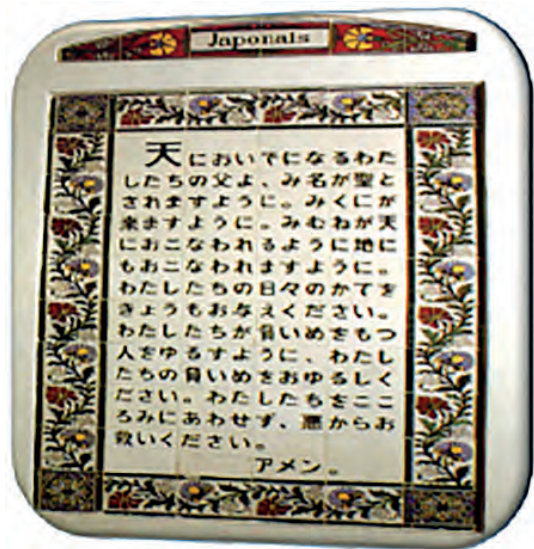 Japonais
天においでになるわた
したちの父よ、み名が聖と
されますように。みくにが
来ますように。みむねが天
におこなわれるように地に
もおこなわれますように。
わたしたちの日々のかてを
きょうもおなえください。
わたしたちが負いめをもつ
人をゆるすように、わたし
たちの負いめをおゆるしく
ださい。わたしたちをここ
ろみにあわせず、悪からお
救いください。
アメン。